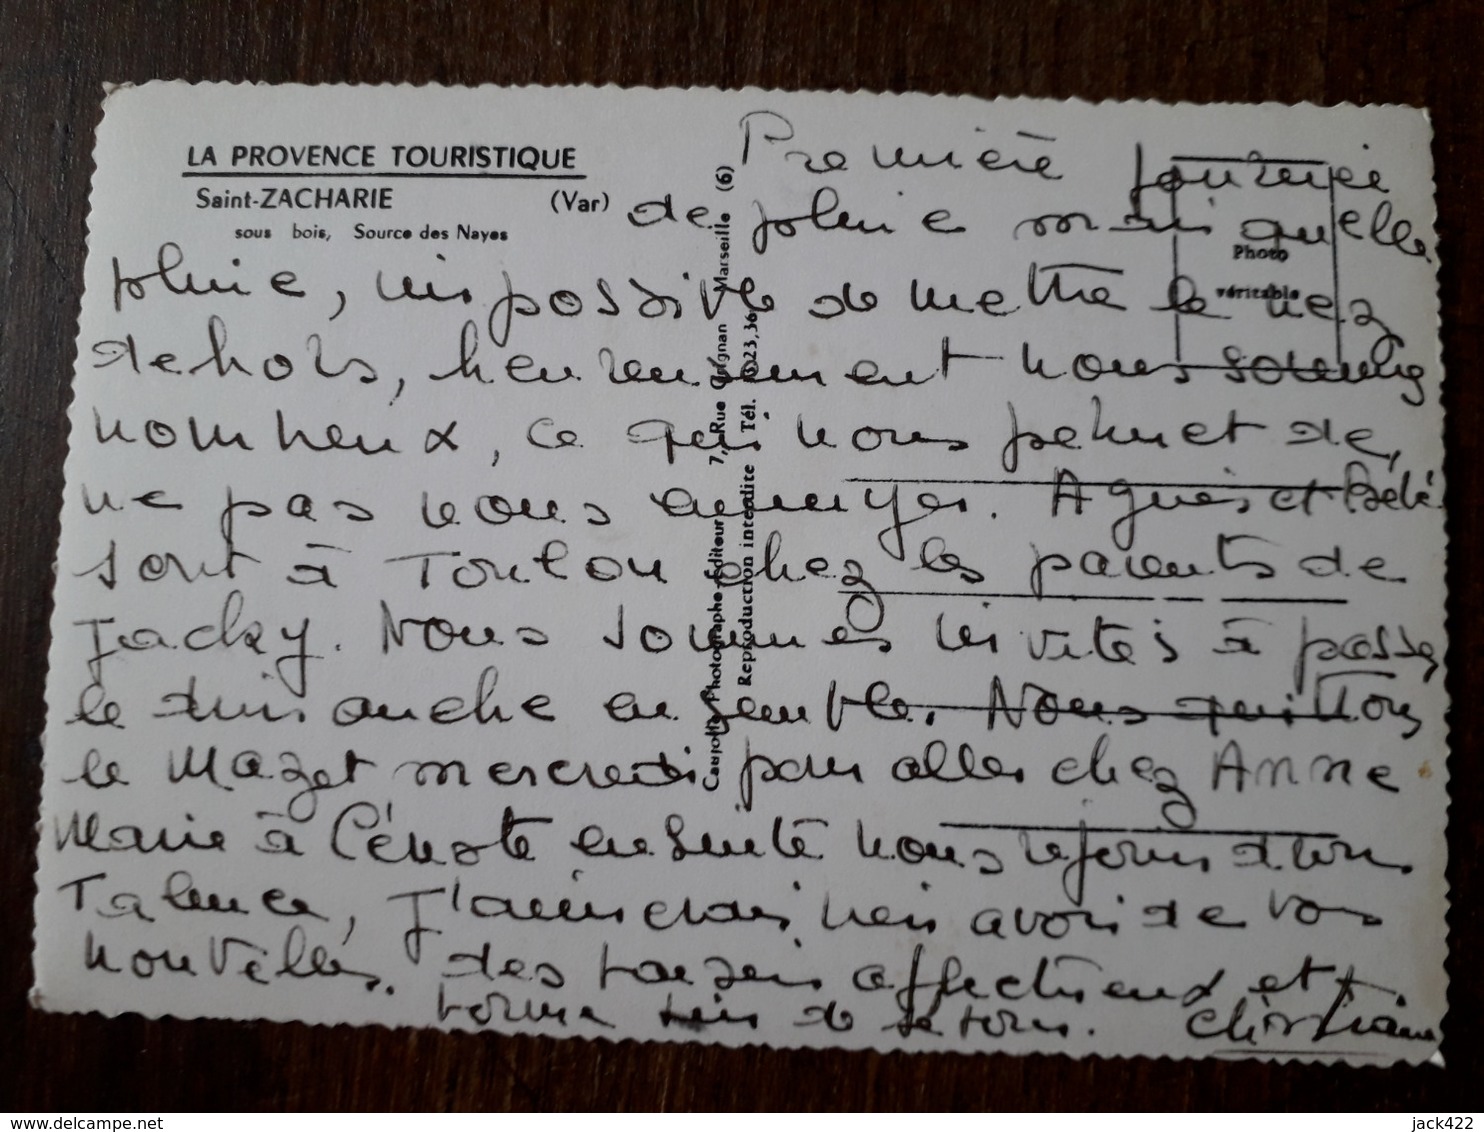 LA PROVENCE TOURISTIQUE
Saint-ZACHARIE (Var)
sous bois, Source des Nayes
Photo
véritable
Caujolle, Photographe-Editeur 7, Rue Grignan Marseille (6)
Reproduction interdite Tél. 23,36
Première journée
de pluie mais quelle
pluie, impossible de mettre le nez
dehors, heureusement nous sommes
nombreux, ce qui nous permet de
ne pas nous ennuyer. Agnès et bébé
sont à Toulon chez les parents de
Jacky. Nous sommes invités à passer
le dimanche ensemble. Nous quittons
le Mazet mercredi pour aller chez Anne
Marie à Céreste ensuite nous rejoindrons
Talence, J'aimerais bien avoir de vos
nouvelles. des baisers affectueux et
bonne de séjour. Christiane
jack422